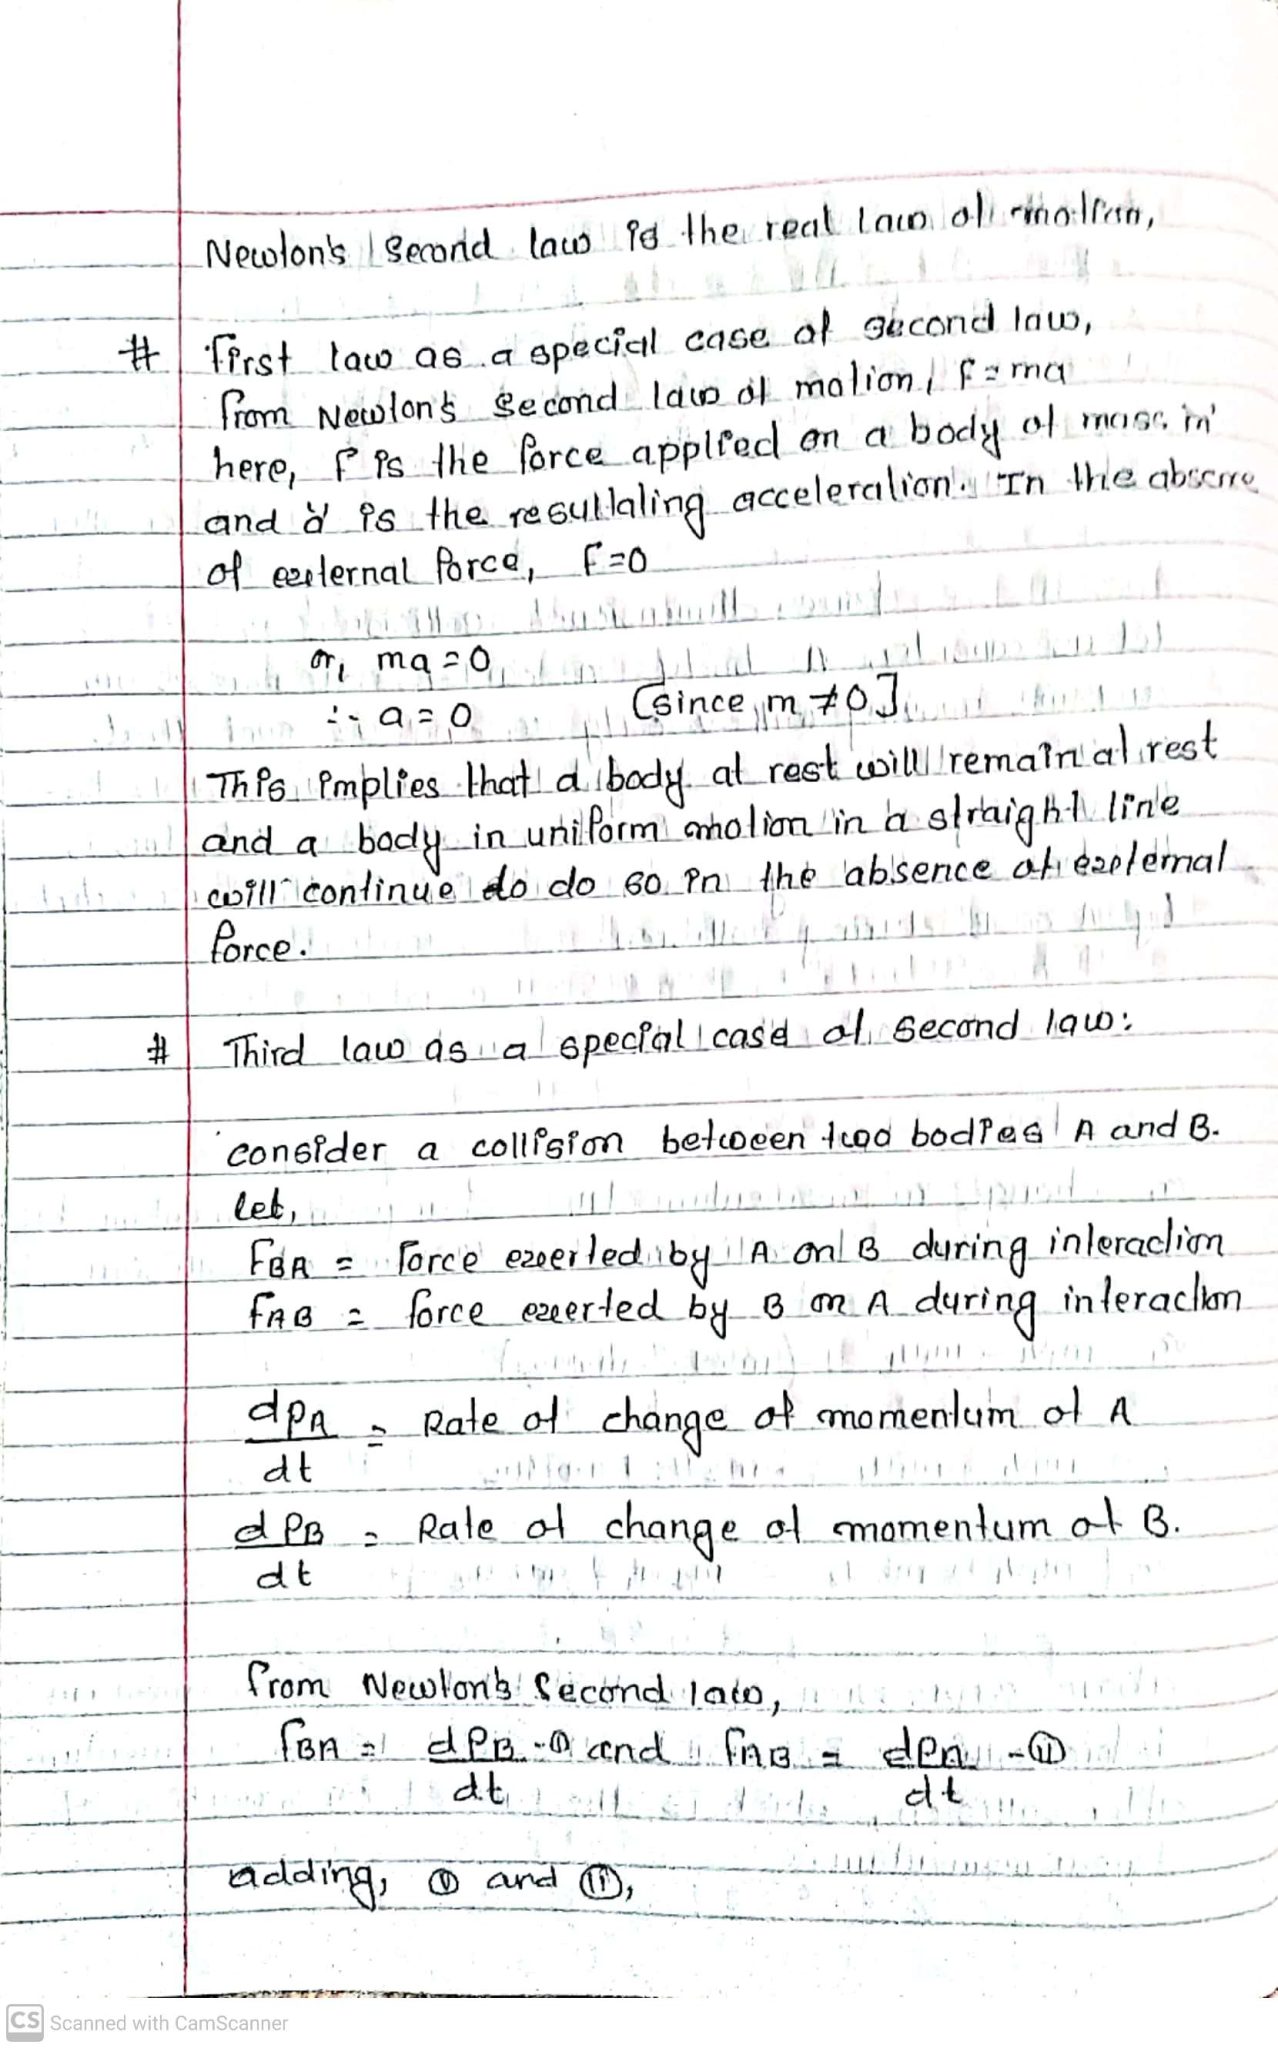 Newton's Second law is the real law of motion,
# First law as a special case of second law,
from Newton's Second law of motion, F = ma
here, F is the force applied on a body of mass 'm'
and 'a' is the resultating acceleration. In the abscence
of external force, F=0
or, ma = 0
∴ a = 0 [since, m ≠ 0]
This implies that a body at rest will remain at rest
and a body in uniform motion in a straight line
will continue do do so in the absence of external
force.
# Third law as a special case of second law:
consider a collision between two bodies A and B.
let,
FBA = Force exerted by A on B during interaction
FAB = force exerted by B on A during interaction
dPA/dt = Rate of change of momentum of A
dPB/dt = Rate of change of momentum of B.
from Newton's Second law,
FBA = dPB/dt - (i) and FAB = dPA/dt - (ii)
adding, (i) and (ii),
CS Scanned with CamScanner